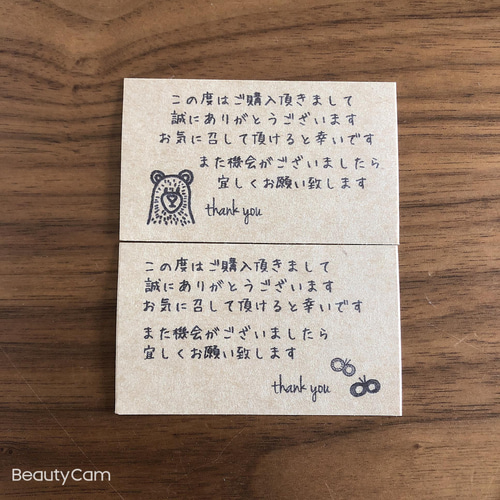 この度はご購入頂きまして
誠にありがとうございます
お気に召して頂けると幸いです
また機会がございましたら
宜しくお願い致します
thank you
この度はご購入頂きまして
誠にありがとうございます
お気に召して頂けると幸いです
また機会がございましたら
宜しくお願い致します
thank you
BeautyCam